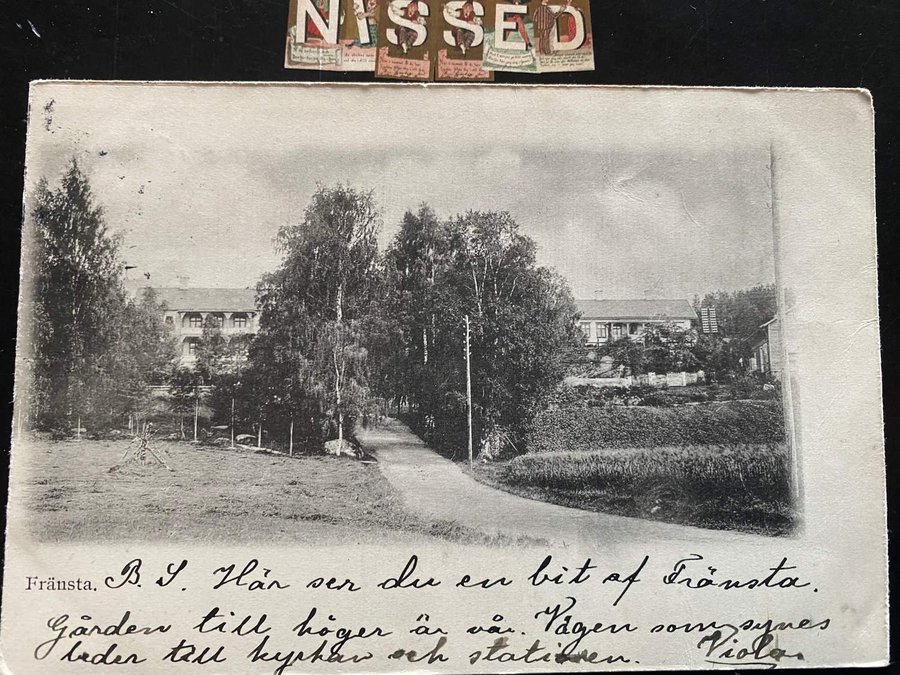 NISSED
Fränsta. B. S. Här ser du en bit af Fränsta.
Gården till höger är vår. Vägen som synes
leder till kyrkan och stationen. Viola